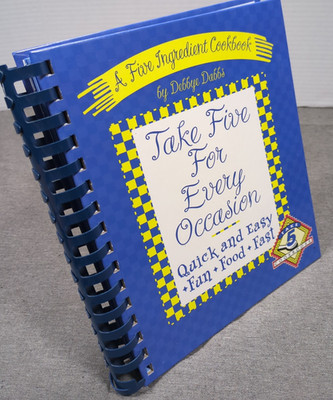 A Five Ingredient Cookbook
by Debbye Dabbs
Take Five
For
Every
Occasion
Quick and Easy
•Fun • Food • Fast
5